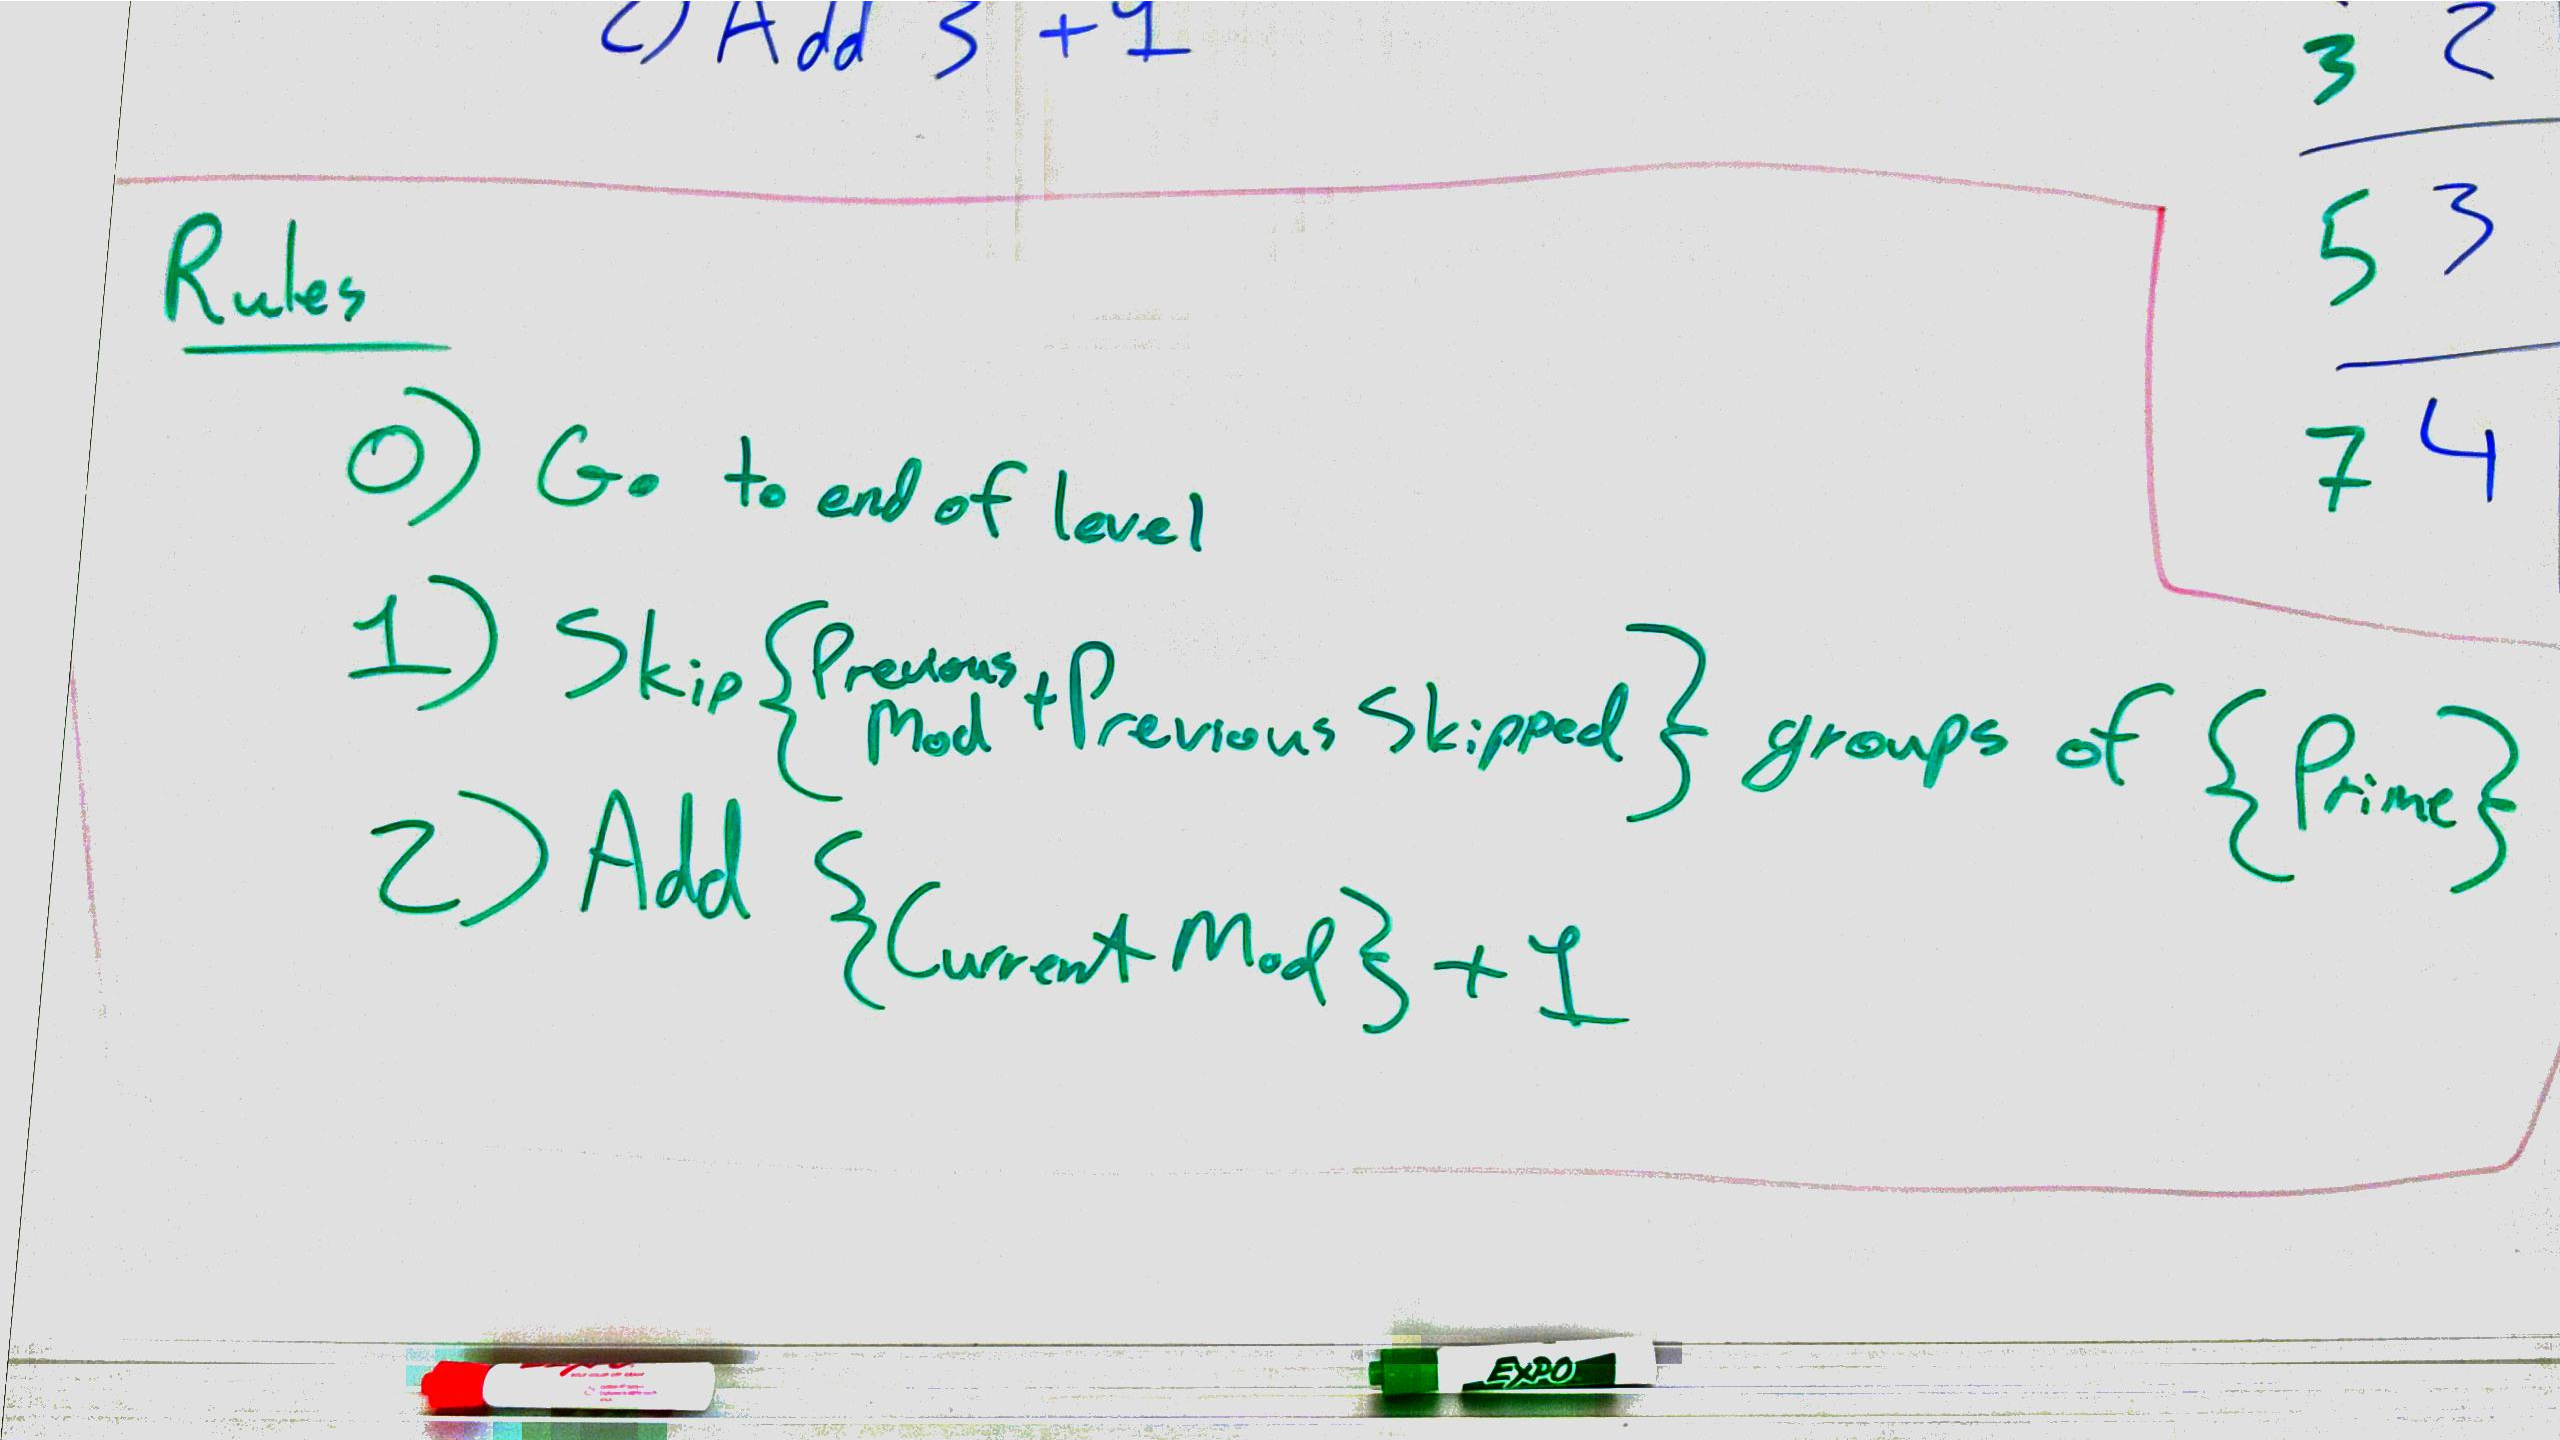 2) Add 3 +1
3 2
5 3
7 4
Rules
0) Go to end of level
1) Skip {Previous Mod + Previous Skipped} groups of {Prime}
2) Add {Current Mod} + 1
EXPO